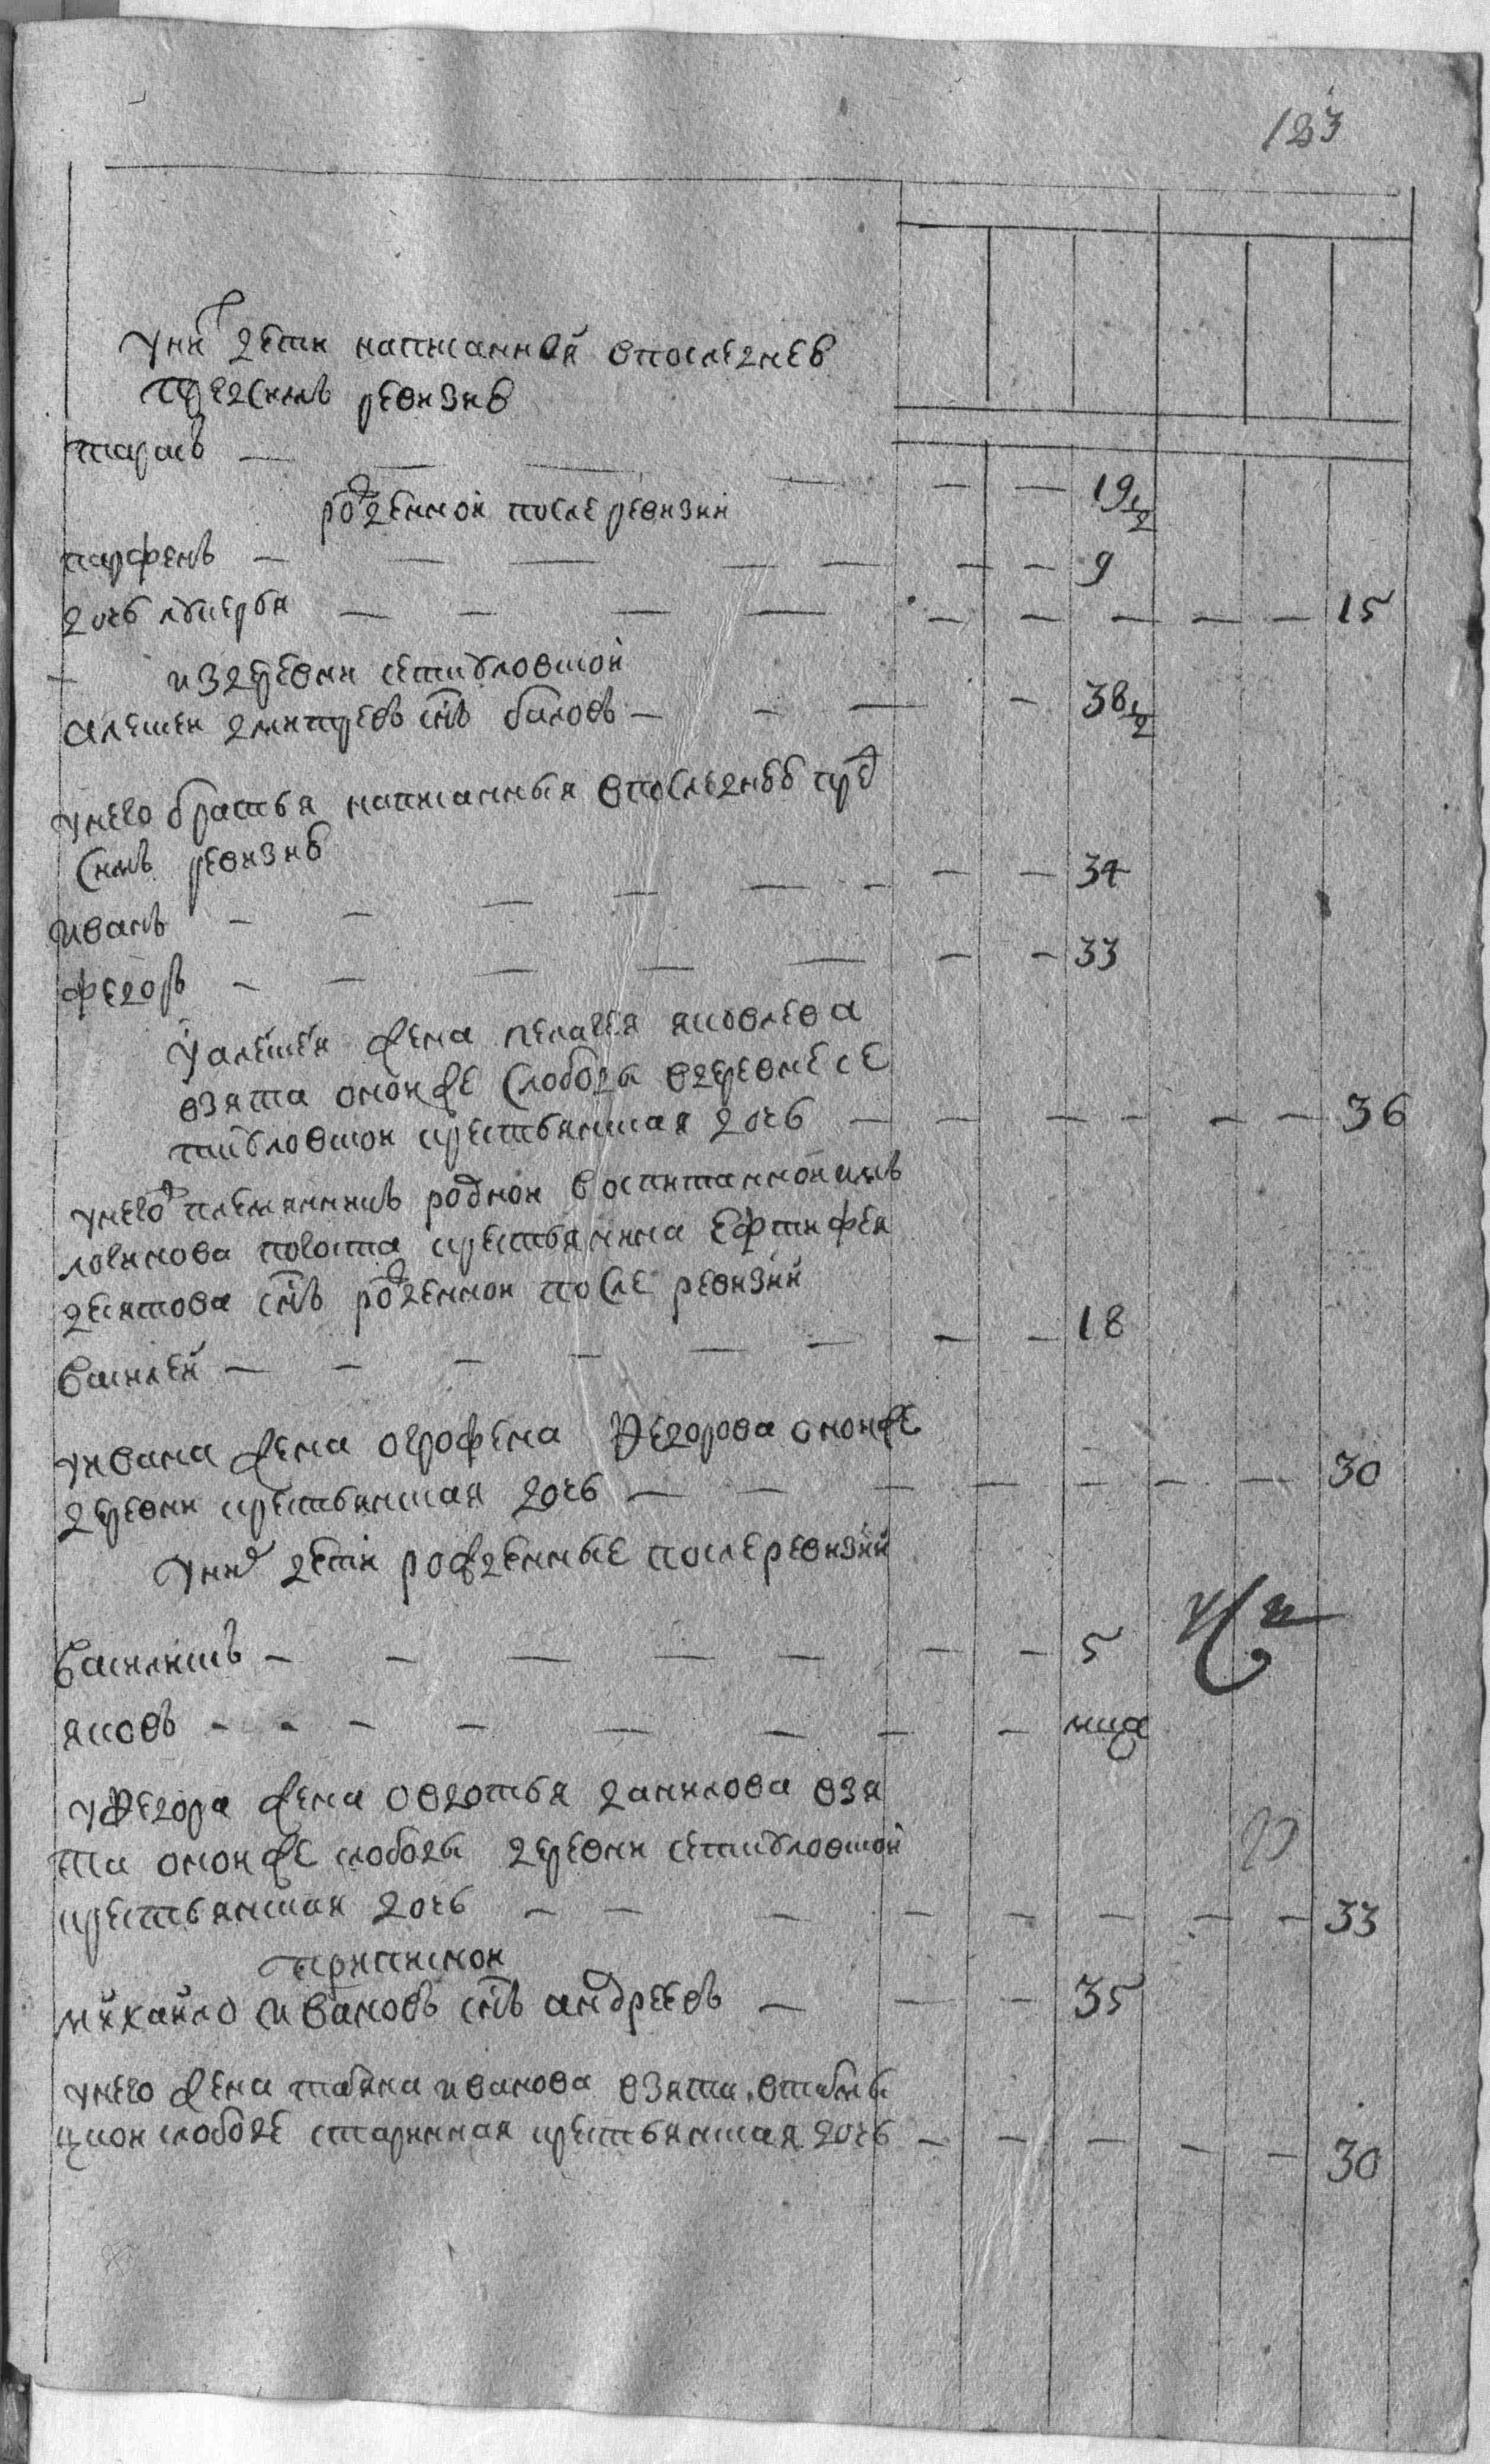 123
у них дети написанныя впоследнеь
пред симъ ревизиь
тарасъ — — — — — — 19 1/2
рожденной после ревизии
парфенъ — — — — — — — 9
дочь лукерья — — — — — — — — — 15
из деревни
алексеи дмитреевъ снъ быковъ — — — — 38 1/2
у него братья написанныя впоследнеь пред
симъ ревизиь
иванъ — — — — — — — — 34
федоръ — — — — — — — 33
у алексея жена пелагея яковлева
взята оной же слободы в деревне се
крестьянская дочь — — — — — — 36
у него племянникъ родной воспитанной имъ
логинова погоста крестьянина ефтифея
снъ рожденной после ревизии
василей — — — — — — — — 18
у ивана жена огрофена федорова оной же
деревни крестьянская дочь — — — — — — — 30
у них дети рожденные после ревизии
василискъ — — — — — — — 5
яковъ — — — — — — — —
у федора жена овдотья данилова взя
та оной же слободы деревни
крестьянская дочь — — — — — — — — 33
приписной
михаило ивановъ снъ андреевъ — — — 35
у него жена татьяна иванова взята
слободе старинная крестьянская дочь — — — — — 30